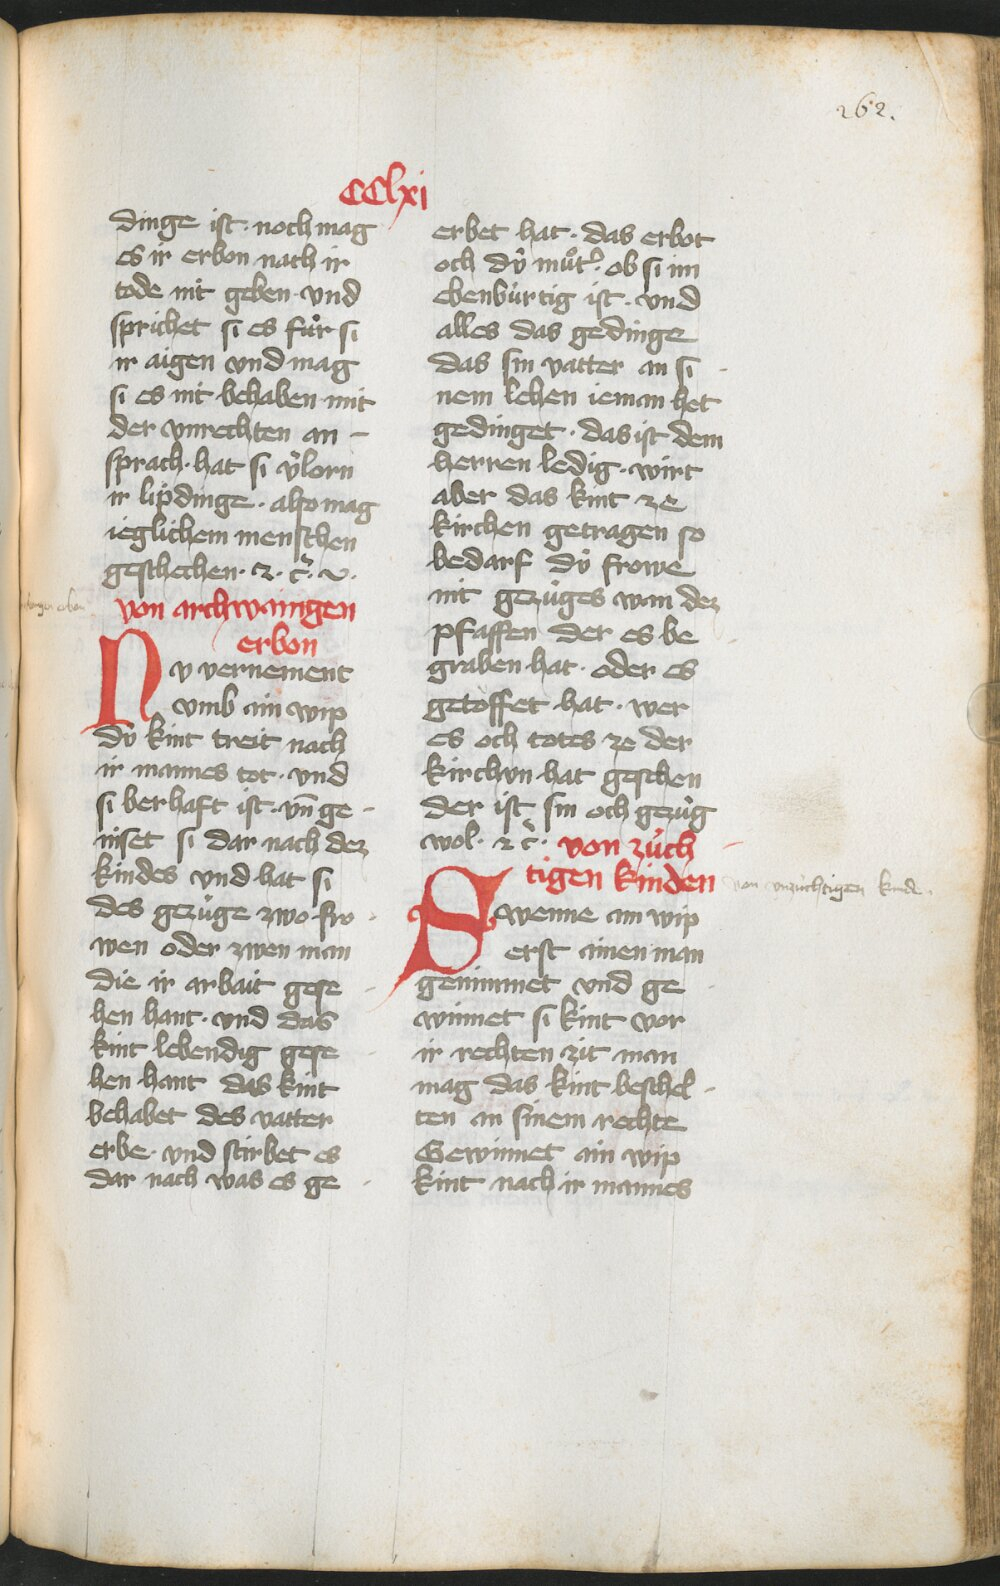 262.
CClxi
dinge ist · noch mag
es ir erbon nach ir
tode nit geben · vnd
sprichet si es fuͦr si
ir aigen vnd mag
si es nit behaben mit
der vnrechten an -
sprach · hat si v̓lorn
ir lipdinge · also mag
ieglichem menschen
geschechen · ⁊ · c̓ · v ·
von archwaingen
erbon
Nv vernement
vmb ain wip
dv̂ kint treit nach
ir mannes tot · vnd
si berhaft ist · vn̄ ge -
niset si dar nach dez
kindes vnd hat si
des gezuͤge zwo fro -
wen oder zwen man
die ir arbait gese -
hen hant · vnd das
kint lebendig gese -
hen hant das kint
behabet des vatter
erbe · vnd stirbet es
dar nach was es ge -
erbet hat · das erbot
och dv̂ muͦt̓ · ob si im
ebenbuͤrtig ist · vnd
alles das gedinge
das sin vatter an si -
nem lehen ieman het
gedinget · das ist dem
herren ledig · wirt
aber das kint ze
kirchen getragen so
bedarf dv̂ frowe
nit gezuͤges wan dez
pfaffen der es be -
graben hat · oder es
getoffet hat · wer
es och totes ze der
kirchvn hat geschen
der ist sin och gezuͤg
wol · ⁊ c̓ · von zuͤch -
tigen kinden
von vnzuͤchtigen kinde
Swenne ain wip
erst ainen man
genimmet vnd ge -
winnet si kint vor
ir rechten zit man
mag das kint beschel -
ten an sinem rechte
Gewinnet ain wip
kint nach ir mannes